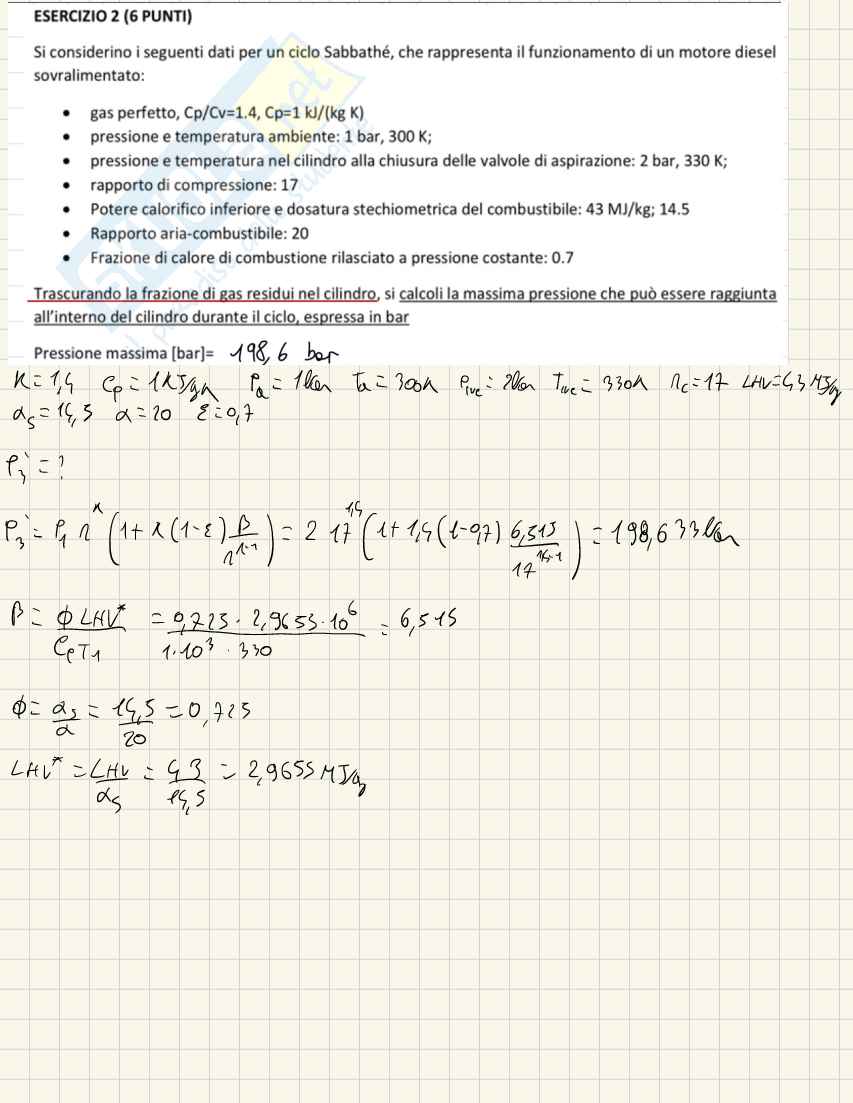 ESERCIZIO 2 (6 PUNTI)
Si considerino i seguenti dati per un ciclo Sabbathé, che rappresenta il funzionamento di un motore diesel
sovralimentato:
• gas perfetto, Cp/Cv=1.4, Cp=1 kJ/(kg K)
• pressione e temperatura ambiente: 1 bar, 300 K;
• pressione e temperatura nel cilindro alla chiusura delle valvole di aspirazione: 2 bar, 330 K;
• rapporto di compressione: 17
• Potere calorifico inferiore e dosatura stechiometrica del combustibile: 43 MJ/kg; 14.5
• Rapporto aria-combustibile: 20
• Frazione di calore di combustione rilasciato a pressione costante: 0.7
Trascurando la frazione di gas residui nel cilindro, si calcoli la massima pressione che può essere raggiunta
all'interno del cilindro durante il ciclo, espressa in bar
Pressione massima [bar]= 198,6 bar
K=1,4 Cp=1KJ/kgK Pa=1bar Ta=300K Pivc=2bar Tivc=330K rc=17 LHV=43MJ/kg
αs=14,5 α=20 ε=0,7
P3'=?
P3'= P1 r^K (1+K(1-ε) β/r^(K-1)) = 2 17^1,4 (1+1,4(1-0,7) 6,515/17^(1,4-1)) = 198,633 bar
β= φ LHV*/CpT1 = 0,725 · 2,9655·10^6/1·10^3 · 330 = 6,515
φ= αs/α = 14,5/20 = 0,725
LHV* = LHV/αs = 43/14,5 = 2,9655 MJ/kg